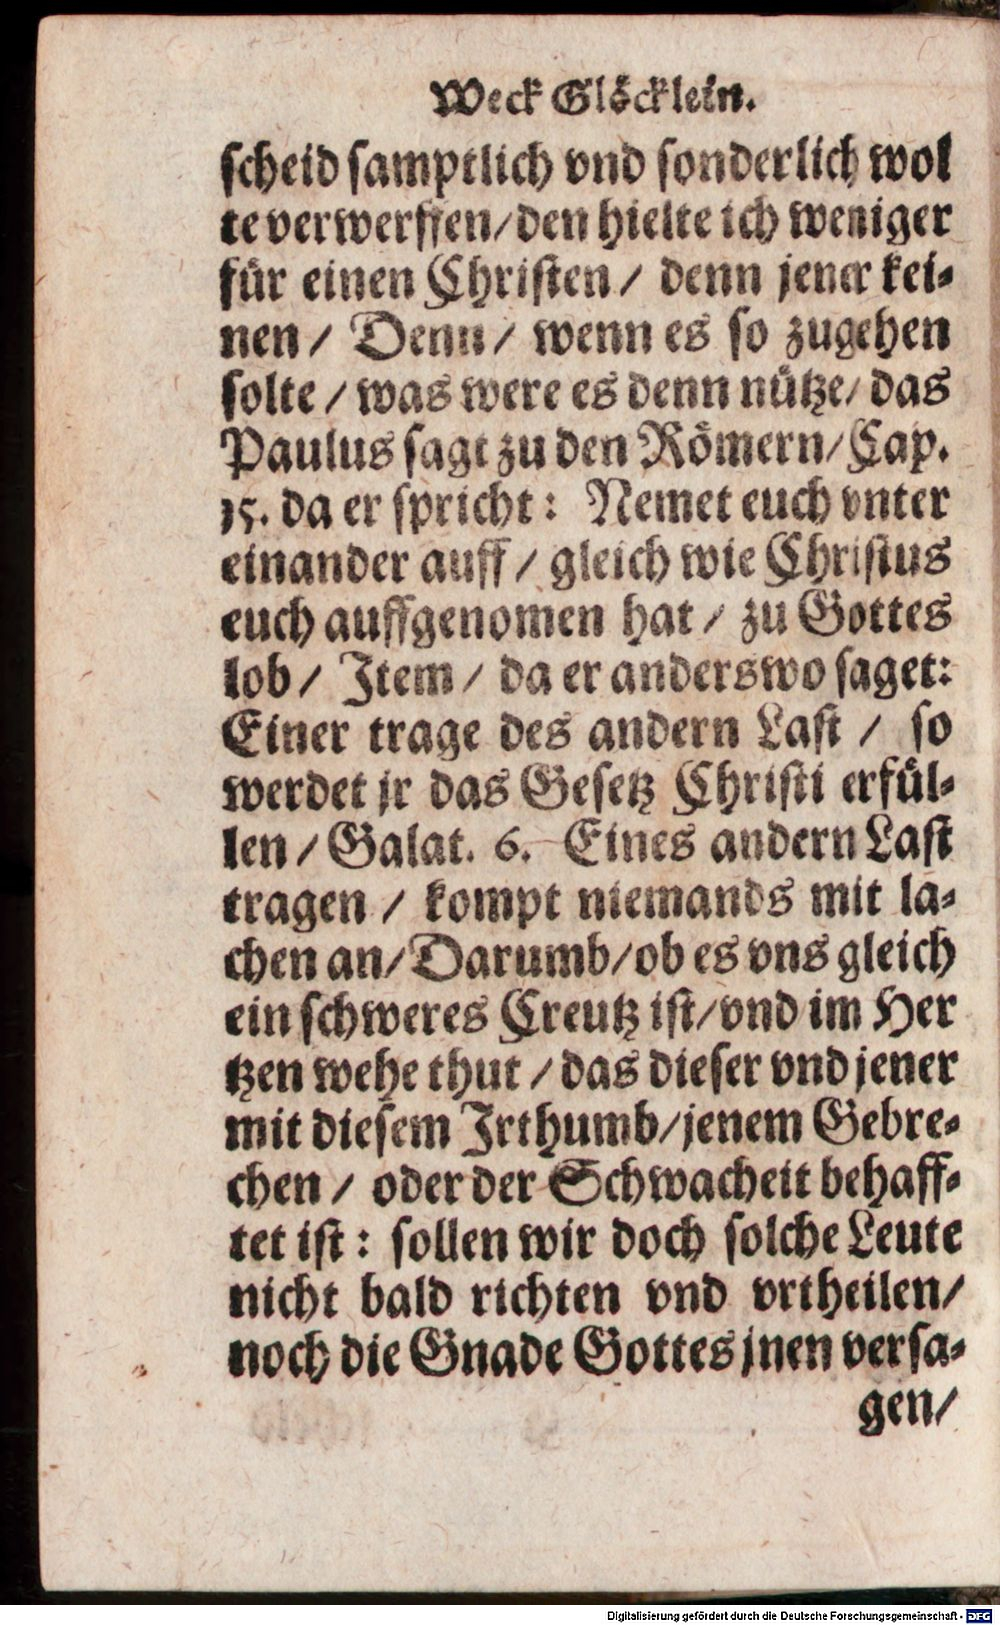 Weck Glöcklein.
scheid samptlich vnd sonderlich wol
te verwerffen/den hielte ich weniger
für einen Christen / denn jener kei-
nen / Denn / wenn es so zugehen
solte / was were es denn nütze/ das
Paulus sagt zu den Römern/Cap.
15. da er spricht: Nemet euch vnter
einander auff / gleich wie Christus
euch auffgenomen hat / zu Gottes
lob / Item / da er anderswo saget:
Einer trage des andern Last / so
werdet jr das Gesetz Christi erfül-
len / Galat. 6. Eines andern Last
tragen / kompt niemands mit la-
chen an/Darumb/ob es vns gleich
ein schweres Creutz ist/vnd im Her
tzen wehe thut / das dieser vnd jener
mit diesem Irthumb/jenem Gebre-
chen / oder der Schwacheit behaff-
tet ist: sollen wir doch solche Leute
nicht bald richten vnd vrtheilen/
noch die Gnade Gottes jnen versa-
gen/
Digitalisierung gefördert durch die Deutsche Forschungsgemeinschaft - DFG